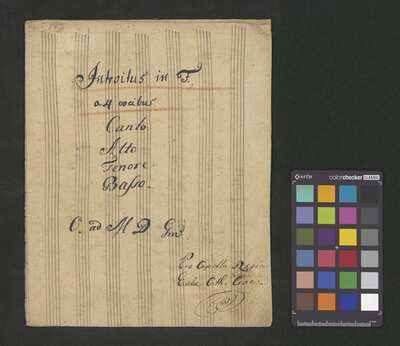 Introitus in F.
a 4 vocibus
Canto
Alto
Tenore
Basso
O. ad M D G
Capella Regia
Cath.
x-rite colorchecker CLASSIC